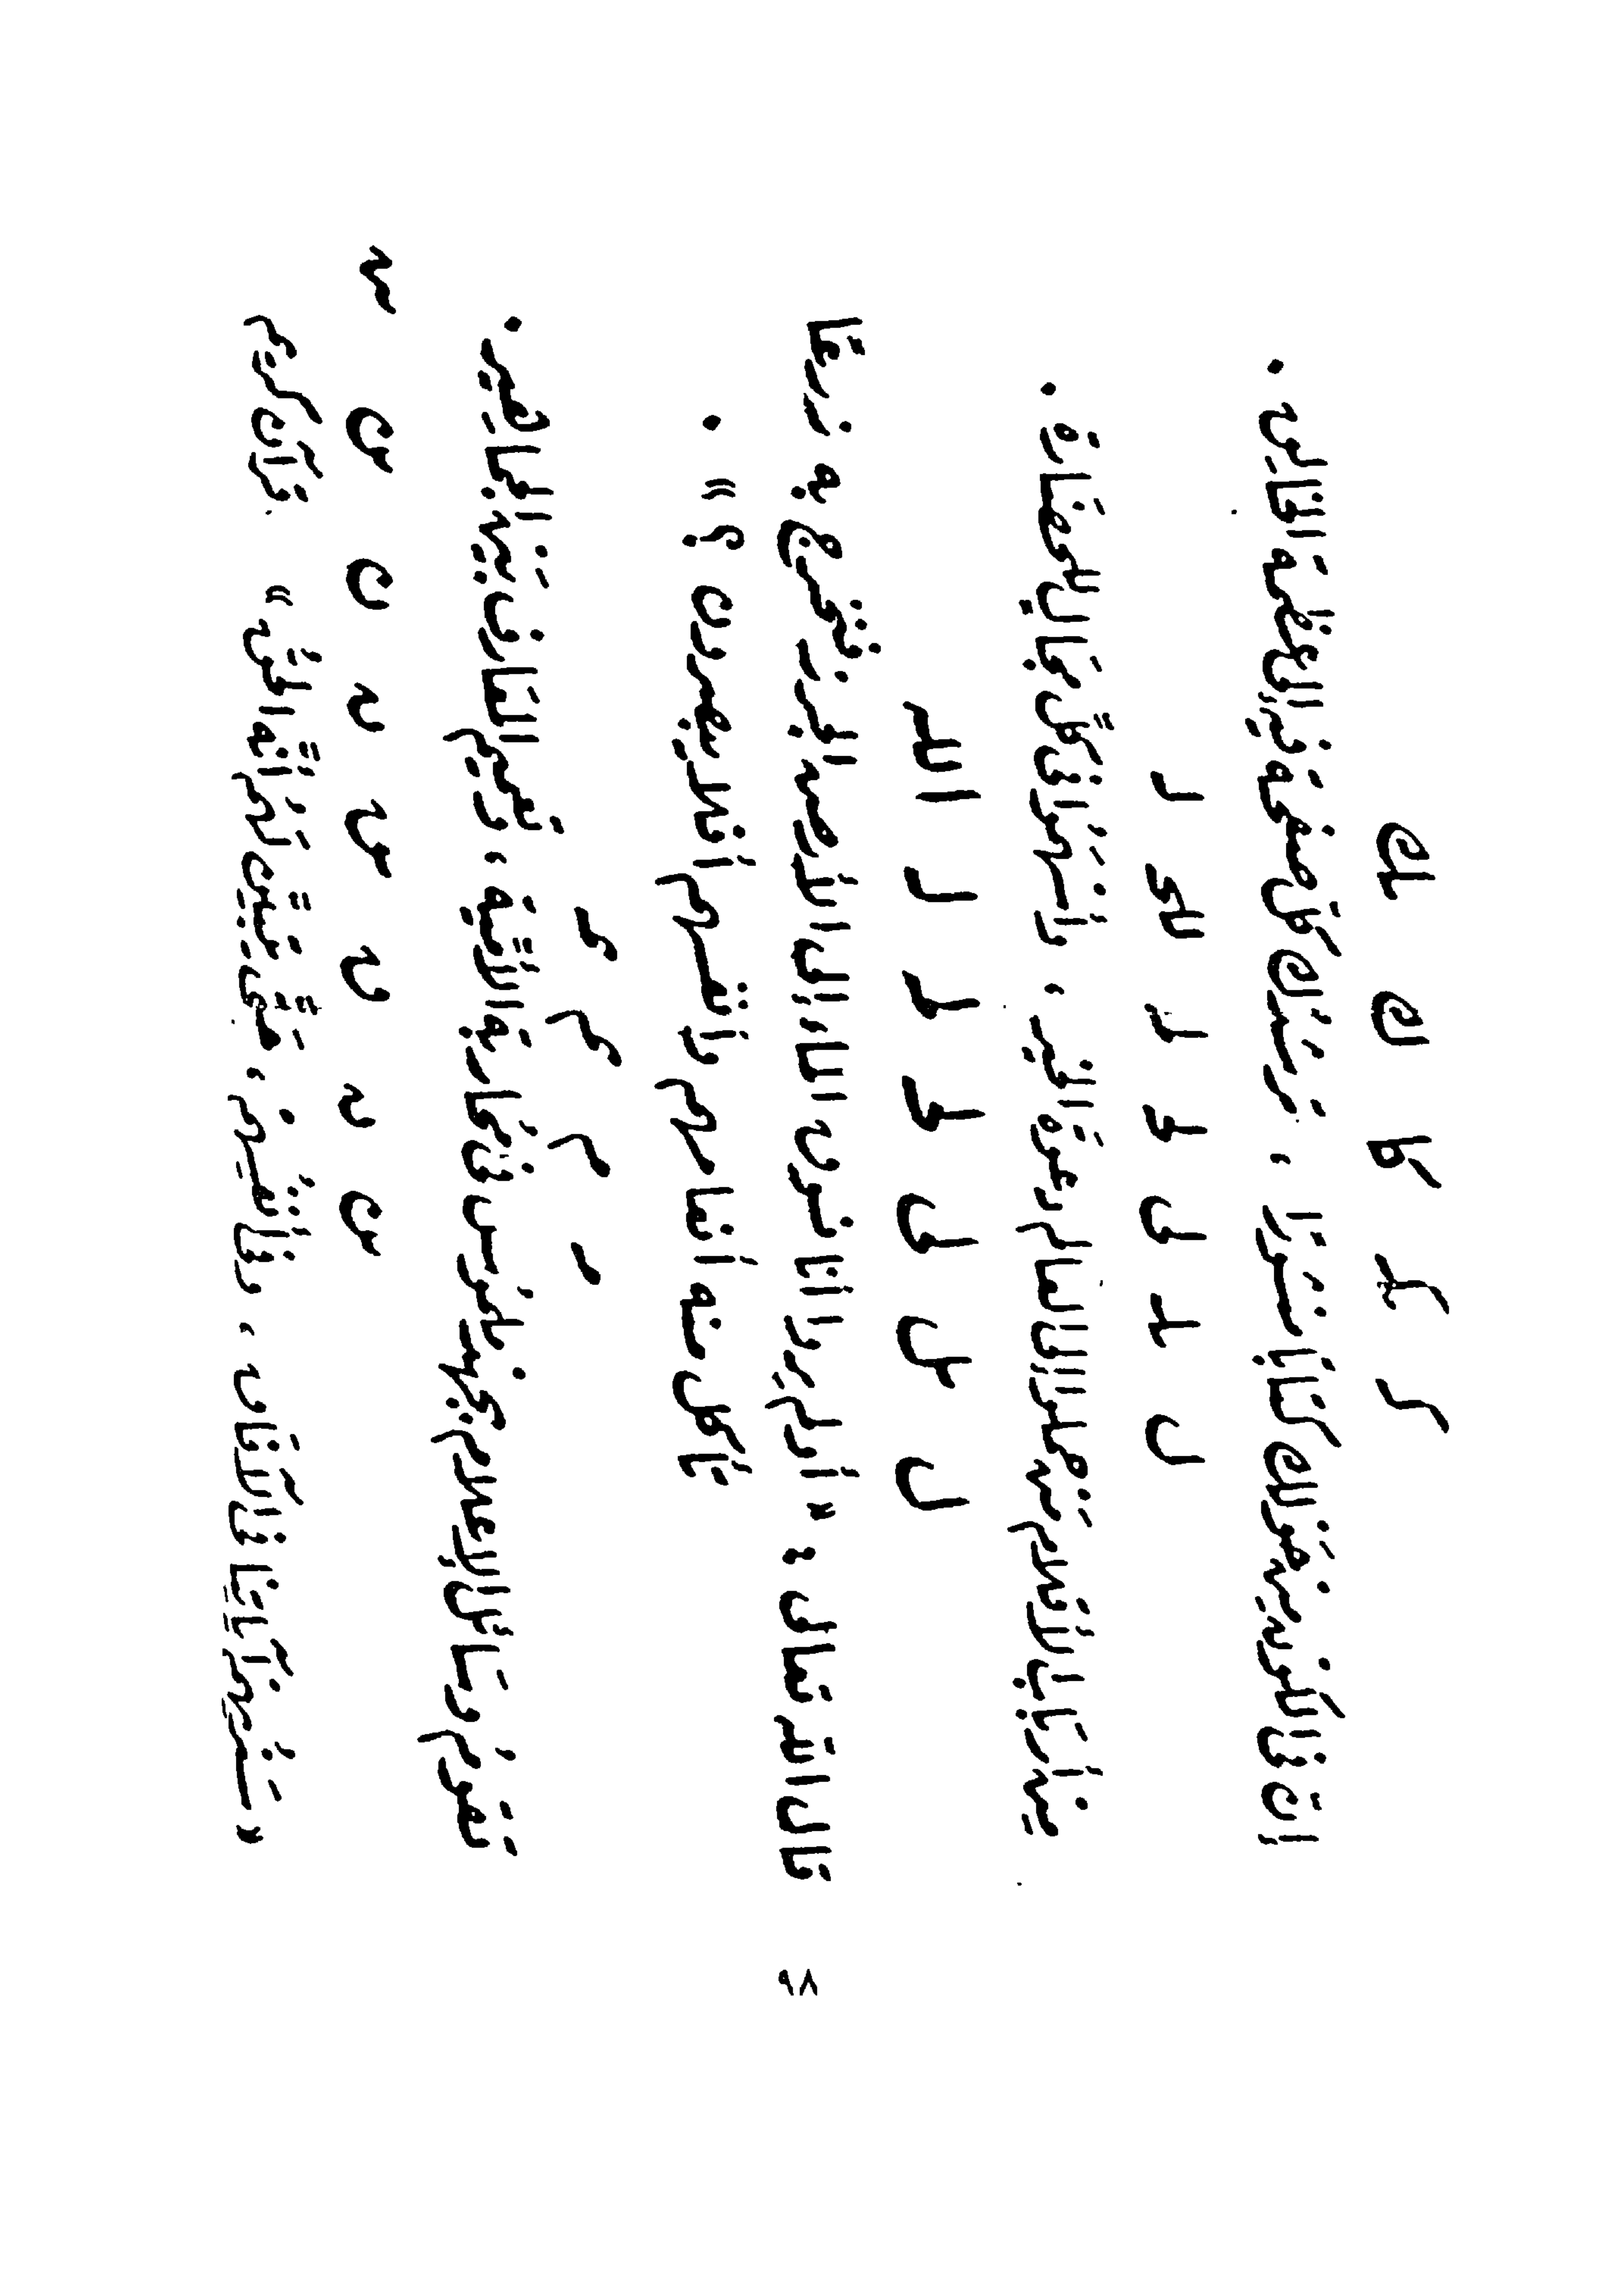 كـ كلـ كا ك لك
إنّ في الكون مِنْ حَوْلك كتابًا مَنشورًا ، تُرشدُك كلّ صفحة فيه إلى عظمة الخالِق .
ل
مِن أربَاب الأقلام مَنْ حملوا إلى العالم دعوَة الخير ، وأسْهَمُوا في كلِّ مجَال للحضارة .
ل سل لى لحـ لمـ لر الله
قال الله تعالى : « أولم يروا أنا نسوق الماء إلى الأرض الجرز فنُخرج به زرعًا
تأكل منه أنعامهم وأنفسهم أفلا يبصرون ؟ » .
تَقومُ وسَائل الإعلام بجهد ملمُوس في محَاربة الأمِّيّة ، وتَعميم المعَارف بَيْن الجماهير .
« سَنُريهمْ آيَاتِنَا في الآفَاق ، وفي أنفُسِهِمْ ، حَتَّى يَتَبَيَّن لَهُمْ أنَّه الحقُّ » قرآن كريم
٢٨